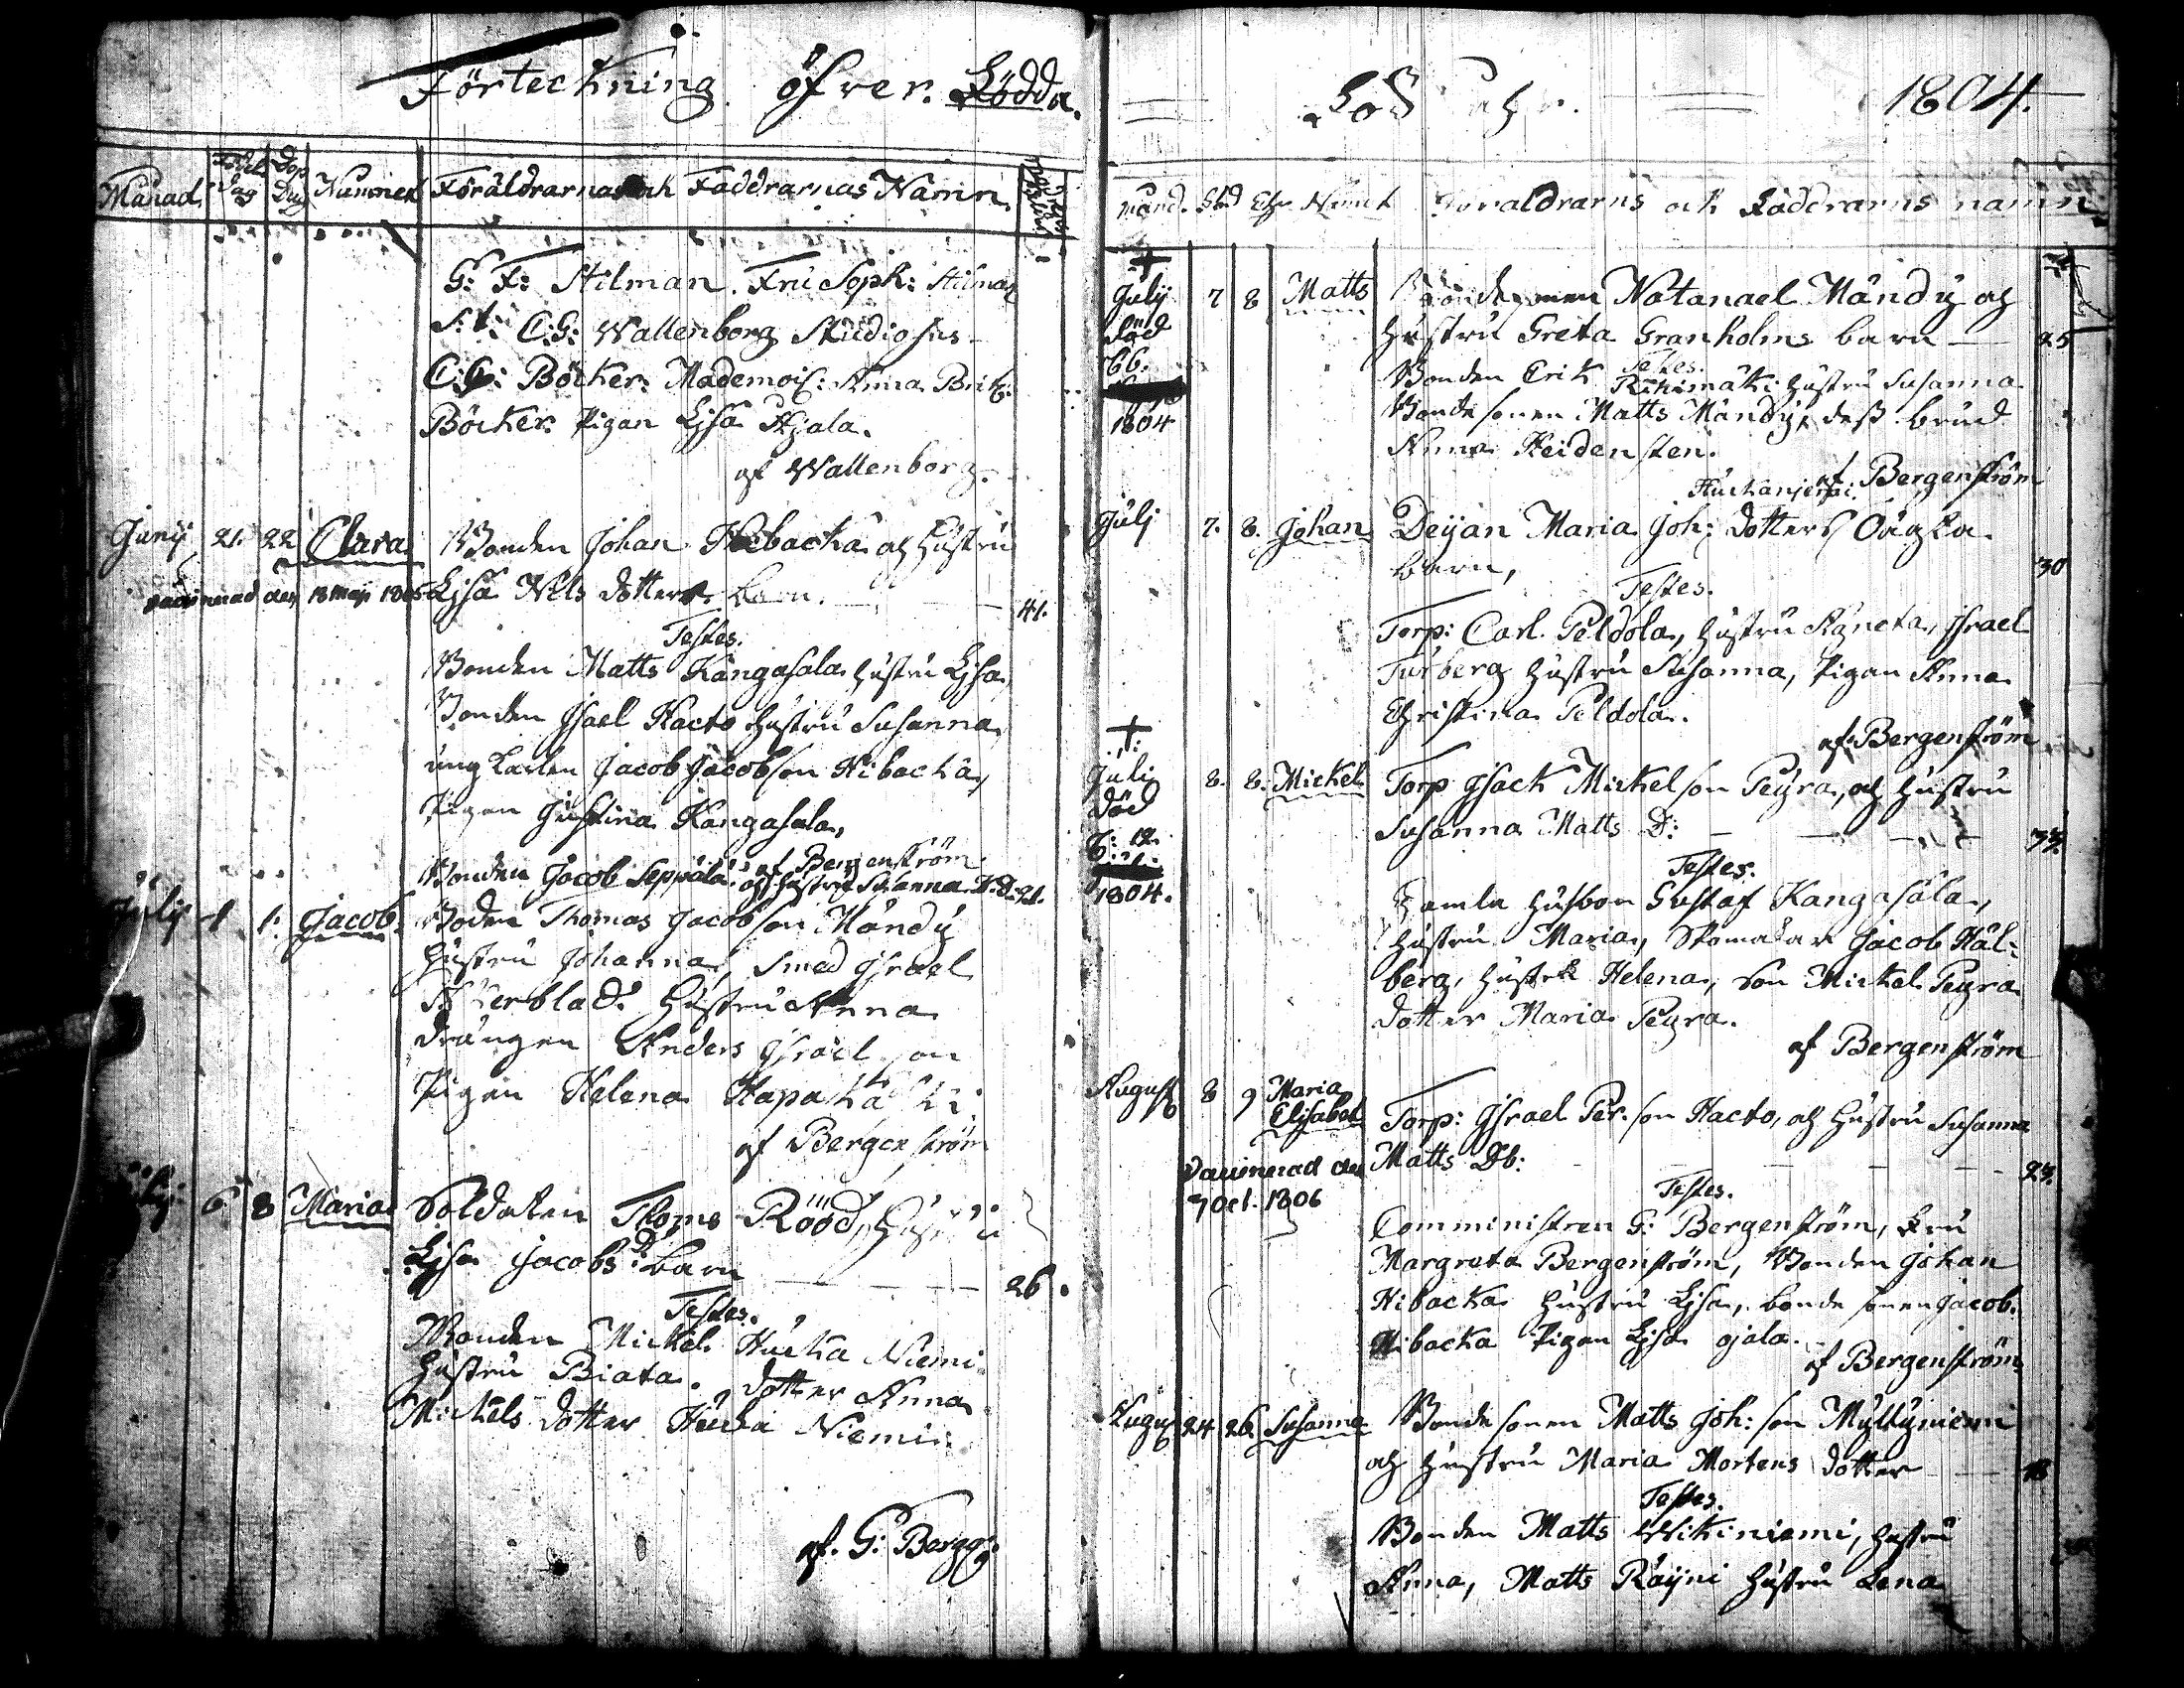 Förteckning öfver Födda
Månad Födels Dag Dop Dag Numnet Föräldrarnas och Faddrarnas Namn
G: F: Stilman. Fru Soph: Stilman
S: t: C: G: Wallenborg Studiosus
C: G: Böcker. Mademois: Anna Brit:
Böcker. Pigan Lisa Ajala.
af Wallenborg.
Junij 21. 22 Clara Bonden Johan Hibacka och Hustru
Vaccinerad den 18 Maji 1805 Lisa Nils dotters barn. 41.
Testes.
Bonden Matts Kangasala hustru Lisa,
Bonden Isael Hacto hustru Susanna
ung karlen Jacob Jacobson Hibacka,
Pigan Justina Kangasala,
af Bergenström
Bonden Jacob Seppälä och hustru Susanna 21.
Julij 1 1. Jacob. Boden Thomas Jacobson Mändy
hustru Johanna, Smed Israel
Åkerblad. Hustru Anna
drängen Anders Israel son
Pigan Helena Hapakäski
af Bergenström
6 8 Maria Soldaten Thoms Rööd, Hustru
Lisa Jacobs D: barn 26.
Testes.
Bonden Mickel Hucka Niemi
hustru Biata. dotter Anna
Mickels dotter Hucka Niemi.
af. G: Bergg.
1804.
Månd. Namnet Foraldrarns och Faddrarns namn
Julij 7 8 Matts Bondesonen Natanael Mändy och
död hustru Greta Granholms barn 25
Testes.
Bonden Erik Rihimäki hustru Susanna
1804 Bonde sonen Matts Mändy, dess brud
Anna Heidensten.
af Bergenström
Huckanjemi.
Julj 7. 8. Johan Deijan Maria Joh: dotters Oägta
barn, 30
Testes.
Torp: Carl Peldola, hustru Agneta, Israel
Furberg hustru Susanna, Pigan Anna
Christina Peldola.
af Bergenström
Juli 8. 8. Mickel Torp Isack Mickelson Peyra, och hustru
död Susanna Matts D:
Testes.
1804. Gamla husbon Gustaf Kangasala,
hustru Maria, Skomakar Jacob Häl-
berg, hustru Helena, Son Mickel Peyra
dotter Maria Peyra.
af Bergenström
August 8 9 Maria Elisabet Torp: Israel Per. son Hacto, och hustru Susanna
Vaccinerad den Matts Dr:
7 Oct. 1806
Testes.
Comministren G: Bergenström, Fru
Margreta Bergenström, Bonden Johan
Hibacka hustru Lisa, bonde sonen Jacob
Hibacka Pigan Lisa ojala.
af Bergenström
August 24 26 Susanna Bonde sonen Matts Joh: son Myllyniemi
och hustru Maria Mortens dotter 18
Testes.
Bonden Matts Wikiniemi, hustru
Anna, Matts Räyni hustru Lena